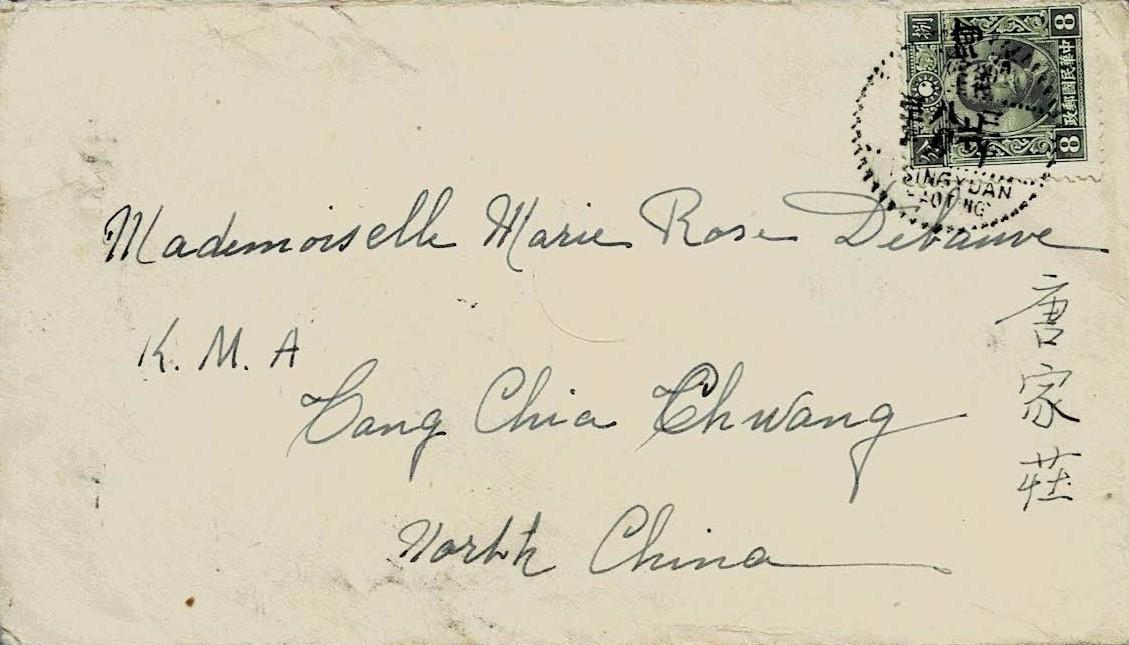 8
中華民國郵政
8
捌
分
河北
SINGYUAN
PAOTING
Mademoiselle Marie Rose Debauve
K. M. A
Tang Chia Chwang
North China
唐家莊